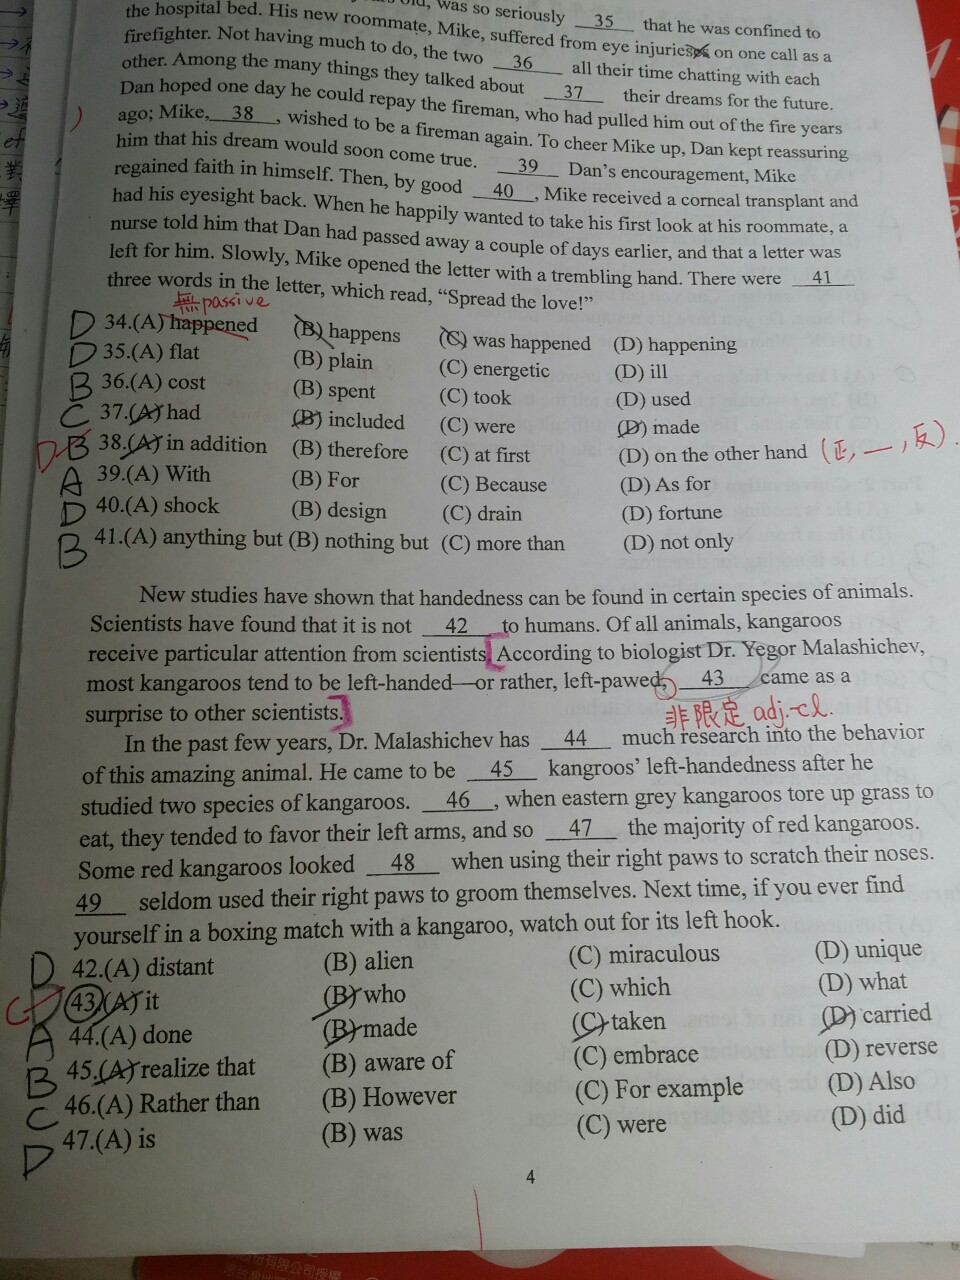 was so seriously 35 that he was confined to
the hospital bed. His new roommate, Mike, suffered from eye injuries on one call as a
firefighter. Not having much to do, the two 36 all their time chatting with each
other. Among the many things they talked about 37 their dreams for the future.
Dan hoped one day he could repay the fireman, who had pulled him out of the fire years
ago; Mike, 38 , wished to be a fireman again. To cheer Mike up, Dan kept reassuring
him that his dream would soon come true. 39 Dan's encouragement, Mike
regained faith in himself. Then, by good 40 , Mike received a corneal transplant and
had his eyesight back. When he happily wanted to take his first look at his roommate, a
nurse told him that Dan had passed away a couple of days earlier, and that a letter was
left for him. Slowly, Mike opened the letter with a trembling hand. There were 41
three words in the letter, which read, "Spread the love!"
無 passive
D 34.(A) happened (B) happens (C) was happened (D) happening
D 35.(A) flat (B) plain (C) energetic (D) ill
B 36.(A) cost (B) spent (C) took (D) used
C 37.(A) had (B) included (C) were (D) made
D B 38.(A) in addition (B) therefore (C) at first (D) on the other hand (正, 一, 反).
A 39.(A) With (B) For (C) Because (D) As for
D 40.(A) shock (B) design (C) drain (D) fortune
B 41.(A) anything but (B) nothing but (C) more than (D) not only
New studies have shown that handedness can be found in certain species of animals.
Scientists have found that it is not 42 to humans. Of all animals, kangaroos
receive particular attention from scientists. [According to biologist Dr. Yegor Malashichev,
most kangaroos tend to be left-handed—or rather, left-pawed, 43 came as a
surprise to other scientists.]
非限定 adj.-cl.
In the past few years, Dr. Malashichev has 44 much research into the behavior
of this amazing animal. He came to be 45 kangroos' left-handedness after he
studied two species of kangaroos. 46 , when eastern grey kangaroos tore up grass to
eat, they tended to favor their left arms, and so 47 the majority of red kangaroos.
Some red kangaroos looked 48 when using their right paws to scratch their noses.
49 seldom used their right paws to groom themselves. Next time, if you ever find
yourself in a boxing match with a kangaroo, watch out for its left hook.
D 42.(A) distant (B) alien (C) miraculous (D) unique
C D 43.(A) it (B) who (C) which (D) what
A 44.(A) done (B) made (C) taken (D) carried
B 45.(A) realize that (B) aware of (C) embrace (D) reverse
C 46.(A) Rather than (B) However (C) For example (D) Also
D 47.(A) is (B) was (C) were (D) did
4